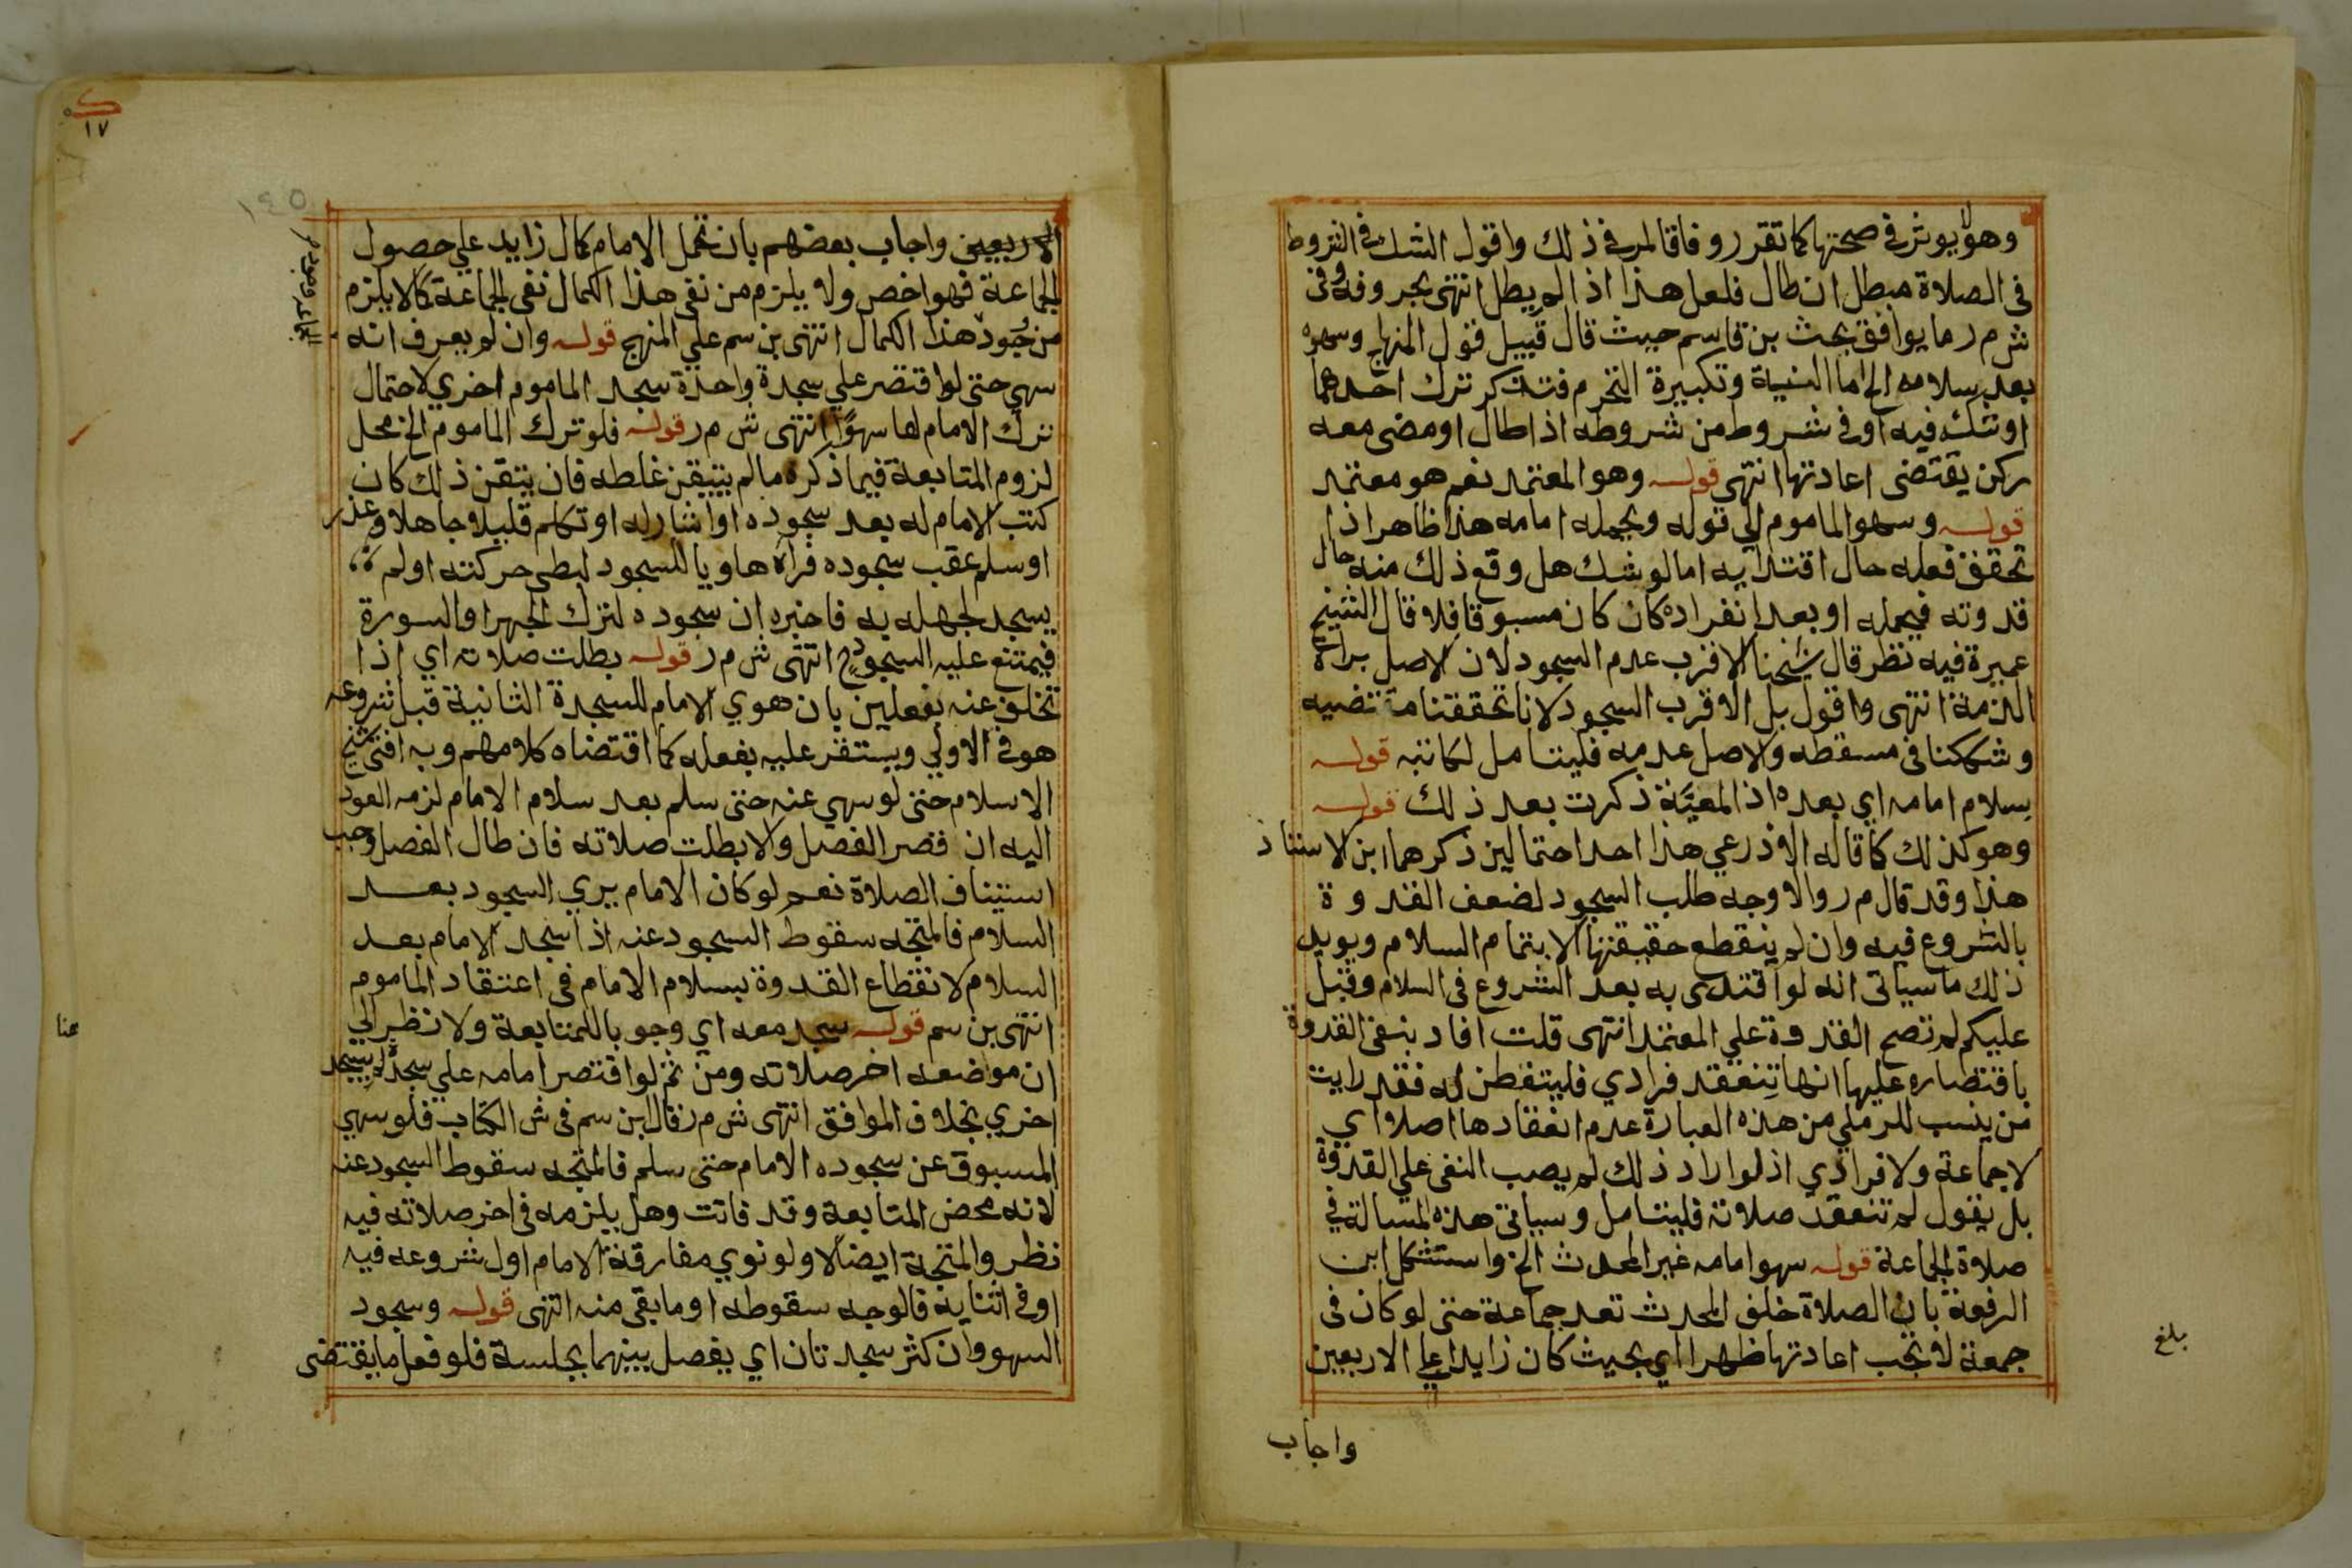 وهو لا يوثر في صحتها كما تقرر وفاقا لمر في ذلك واقول الشك في الشروط
في الصلاة مبطل ان طال فلعل هذا اذا لم يطل انتهى بحروفه وفي
ش م ر ما يوافق بحث بن قاسم حيث قال قبيل قول المنهاج وسهوه
بعد سلامه الخ اما النية وتكبيرة التحرم فتذكر ترك احدهما
او شك فيه او في شروط من شروطه اذا طال او مضى معه
ركن يقتضى اعادتها انتهى قوله وهو المعتمد نعم هو معتمد
قوله وسهو الماموم الي قوله ويحمله امامه هذا ظاهر اذا
تحقق فعله حال اقتدايه اما لو شك هل وقع ذلك منه حال
قدوته فيحمله او بعد انفراده كان كان مسبوقا فلا قال الشيخ
عميرة فيه نظر قال شيخنا الاقرب عدم السجود لان الاصل براة
الذمة انتهى واقول بل الاقرب السجود لانا تحققنا مقتضيه
وشككنا في مسقطه والاصل عدمه فليتامل لكاتبه قوله
سلام امامه اي بعده اذ المعيَّة ذكرت بعد ذلك قوله
وهو كذلك كما قاله الاذرعي هذا احد احتمالين ذكرهما ابن الاستاذ
هذا وقد قال م ر والاوجه طلب السجود لضعف القدوة
بالشروع فيه وان لم ينقطع حقيقتها الا بتمام السلام ويويد
ذلك ما سياتى انه لو اقتدى به بعد الشروع في السلام وقبل
عليكم لم تصح القدوة علي المعتمد انتهى قلت افاد بنفى القدوة
باقتصاره عليها انها تنعقد فرادي فليتفطن له فقد رايت
من ينسب للرملي من هذه العبارة عدم انعقادها اصلا اي
لا جماعة ولا فرادي اذ لو اراد ذلك لم يصب النفى علي القدوة
بل يقول لم تنعقد صلاته فليتامل وسياتى هذه المسالة في
صلاة الجماعة قوله سهو امامه غير المحدث الخ واستشكل ابن
الرفعة بان الصلاة خلف المحدث تعد جماعة حتى لو كان في
جمعة لا تجب اعادتها ظهرا اي بحيث كان زايدا علي الاربعين
واجاب
بلغ
ك
١٧
١٤٥
الاربعين واجاب بعضهم بان تحمل الامام كمال زايد علي حصول
الجماعة فهو اخص ولا يلزم من نفى هذا الكمال نفى الجماعة كما لا يلزم
من وجود هذا الكمال انتهى بن سم علي المنهج قوله وان لم يعرف انه
سهي حتى لو اقتصر علي سجدة واحدة سجد الماموم اخري لاحتمال
ترك الامام لها سهوًا انتهى ش م ر قوله فلو ترك الماموم الخ محل
لزوم المتابعة فيما ذكره ما لم يتيقن غلطه فان تيقن ذلك كان
كتب الامام له بعد سجوده او اشار له او تكلم قليلا جاهلا وعذر
او سلم عقب سجوده فراه هاويا للسجود لبطى حركته او لم
يسجد لجهله به فاخبره ان سجوده لترك الجهر او السورة
فيمتنع عليه السجود ح انتهى ش م ر قوله بطلت صلاته اي اذا
تخلف عنه بفعلين بان هوي الامام للسجدة الثانية قبل شروعه
هو في الاولي ويستقر عليه بفعله كما اقتضاه كلامهم وبه افتى شيخ
الاسلام حتى لو سهي عنه حتى سلم بعد سلام الامام لزمه العود
اليه ان قصر الفصل والا بطلت صلاته فان طال الفصل وجب
استيناف الصلاة نعم لو كان الامام يري السجود بعد
السلام فالمتجه سقوط السجود عنه اذا سجد الامام بعد
السلام لانقطاع القدوة بسلام الامام في اعتقاد الماموم
انتهى بن سم قوله سجد معه اي وجوبا للمتابعة ولا نظر الي
ان موضعه اخر صلاته ومن ثم لو اقتصر امامه علي سجدة لم يسجد
اخري بخلاف الموافق انتهى ش م ر قال ابن سم في ش الكتاب فلو سهي
المسبوق عن سجوده الامام حتى سلم فالمتجه سقوط السجود عنه
لانه محض المتابعة وقد فاتت وهل يلزمه في اخر صلاته فيه
نظر والمتجه ايضا لا ولو نوي مفارقة الامام اول شروعه فيه
او في اثنايه فالوجه سقوطه او ما بقى منه انتهى قوله وسجود
السهو وان كثر سجدتان اي يفصل بينهما بجلسة فلو فعل ما يقتضى